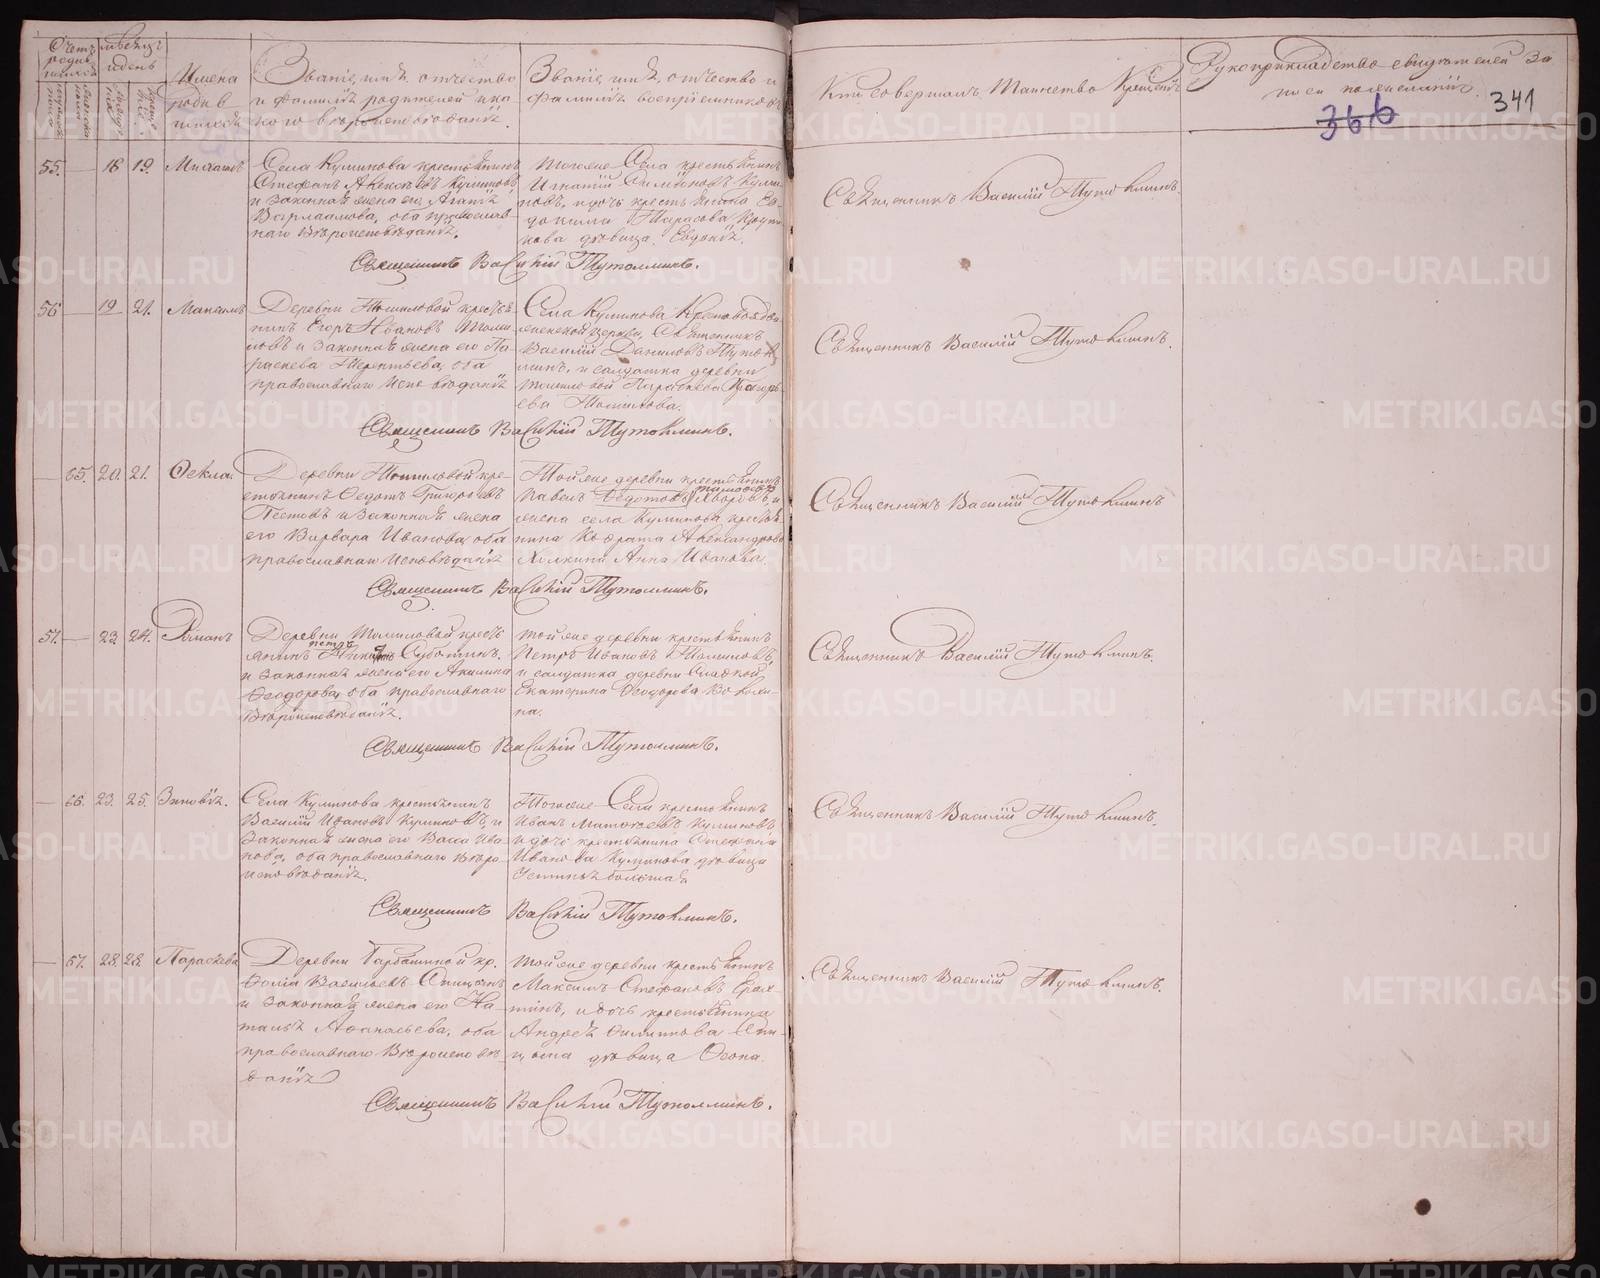 Счетъ родив­шихся
Мѣсяцъ и день
Имена родив­шихся
Званіе, имя, отчество
и фамилія родителей и ка-
кого вѣроисповѣданія.
Званіе, имя, отчество и
фамилія воспріемниковъ
Кто совершалъ Таинство Крещенія
Рукоприкладство свидѣтелей за-
писи по желанію.
366
341
55. — 18 19. Михаилъ
Села Куликова крестьянинъ
Стефанъ Алексѣевъ Куликовъ
и законная жена его Агапія
Варлаамова, оба православ-
наго Вѣроисповѣданія.
Тогоже Села крестьянинъ
Игнатій Кули-
ковъ, и дочь крестьянина Ев-
докима Тарасова
дѣвица Евдокія.
Священникъ Василій Тутолминъ.
Священникъ Василій Тутолминъ.
56 — 19 21. Максимъ
Деревни Томиловой крестья-
нинъ Егоръ Ивановъ Томи-
ловъ и законная жена его Па-
раскева Терентьева, оба
православнаго исповѣданія
Села Куликова Крестовоздви-
женской церкви, Священникъ
Василій Даниловъ Тутол-
минъ, и солдатка деревни
Томиловой Параскева Григорь-
ева Томилова.
Священникъ Василій Тутолминъ.
Священникъ Василій Тутолминъ.
— 65. 20. 21. Ѳекла.
Деревни Томиловой кре-
стьянинъ Ѳедотъ Григорьевъ
Пестовъ и законная жена
его Варвара Иванова, оба
православнаго исповѣданія
Тойже деревни крестьянинъ
Павелъ Ѳедотовъ и
жена села Куликова крестья-
нина Кодрата Александрова
Анна Иванова.
Священникъ Василій Тутолминъ.
Священникъ Василій Тутолминъ
57. — 23. 24. Романъ
Деревни Томиловой кресть-
янинъ Петръ Суботинъ
и законная жена его Акилина
Ѳеодорова, оба православнаго
Вѣроисповѣданія.
Тойже деревни крестьянинъ
Петръ Ивановъ Томиловъ,
и солдатка деревни Сладкой
Екатерина Ѳеодорова
на.
Священникъ Василій Тутолминъ.
Священникъ Василій Тутолминъ.
— 66. 23. 25. Зиновія.
Села Куликова крестьянинъ
Василій Ивановъ Куликовъ, и
законная жена его Васса Ива-
нова, оба православнаго вѣро-
исповѣданія.
Тогоже Села крестьянинъ
Иванъ Матвѣевъ Куликовъ
и дочь крестьянина Стефана
Иванова Куликова дѣвица
большая.
Священникъ Василій Тутолминъ.
Священникъ Василій Тутолминъ.
— 67. 28. 28. Параскева
Деревни кр.
Васильевъ Спицынъ
и законная жена его На-
талья Аѳанасьева, оба
православнаго Вѣроисповѣ-
данія
Тойже деревни крестьянинъ
Максимъ Стефановъ
и дочь крестьянина
Андрея Филипова Спи-
цына дѣвица
Священникъ Василій Тутолминъ.
Священникъ Василій Тутолминъ.
METRIKI.GASO-URAL.RU